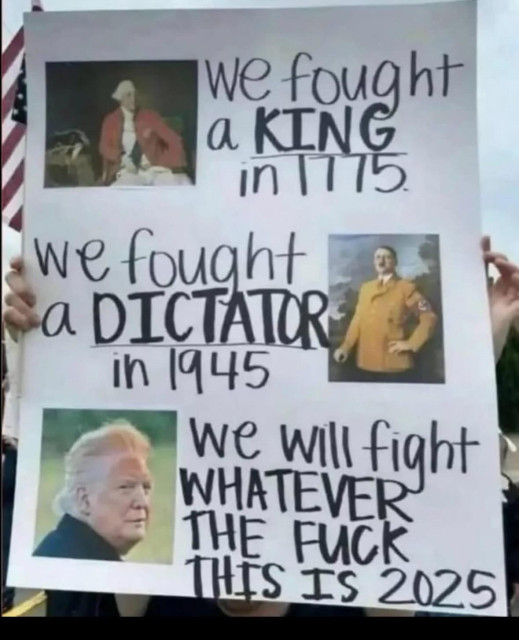 we fought
a KING
in 1775.
we fought
a DICTATOR
in 1945
we will fight
WHATEVER
THE FUCK
THIS IS 2025